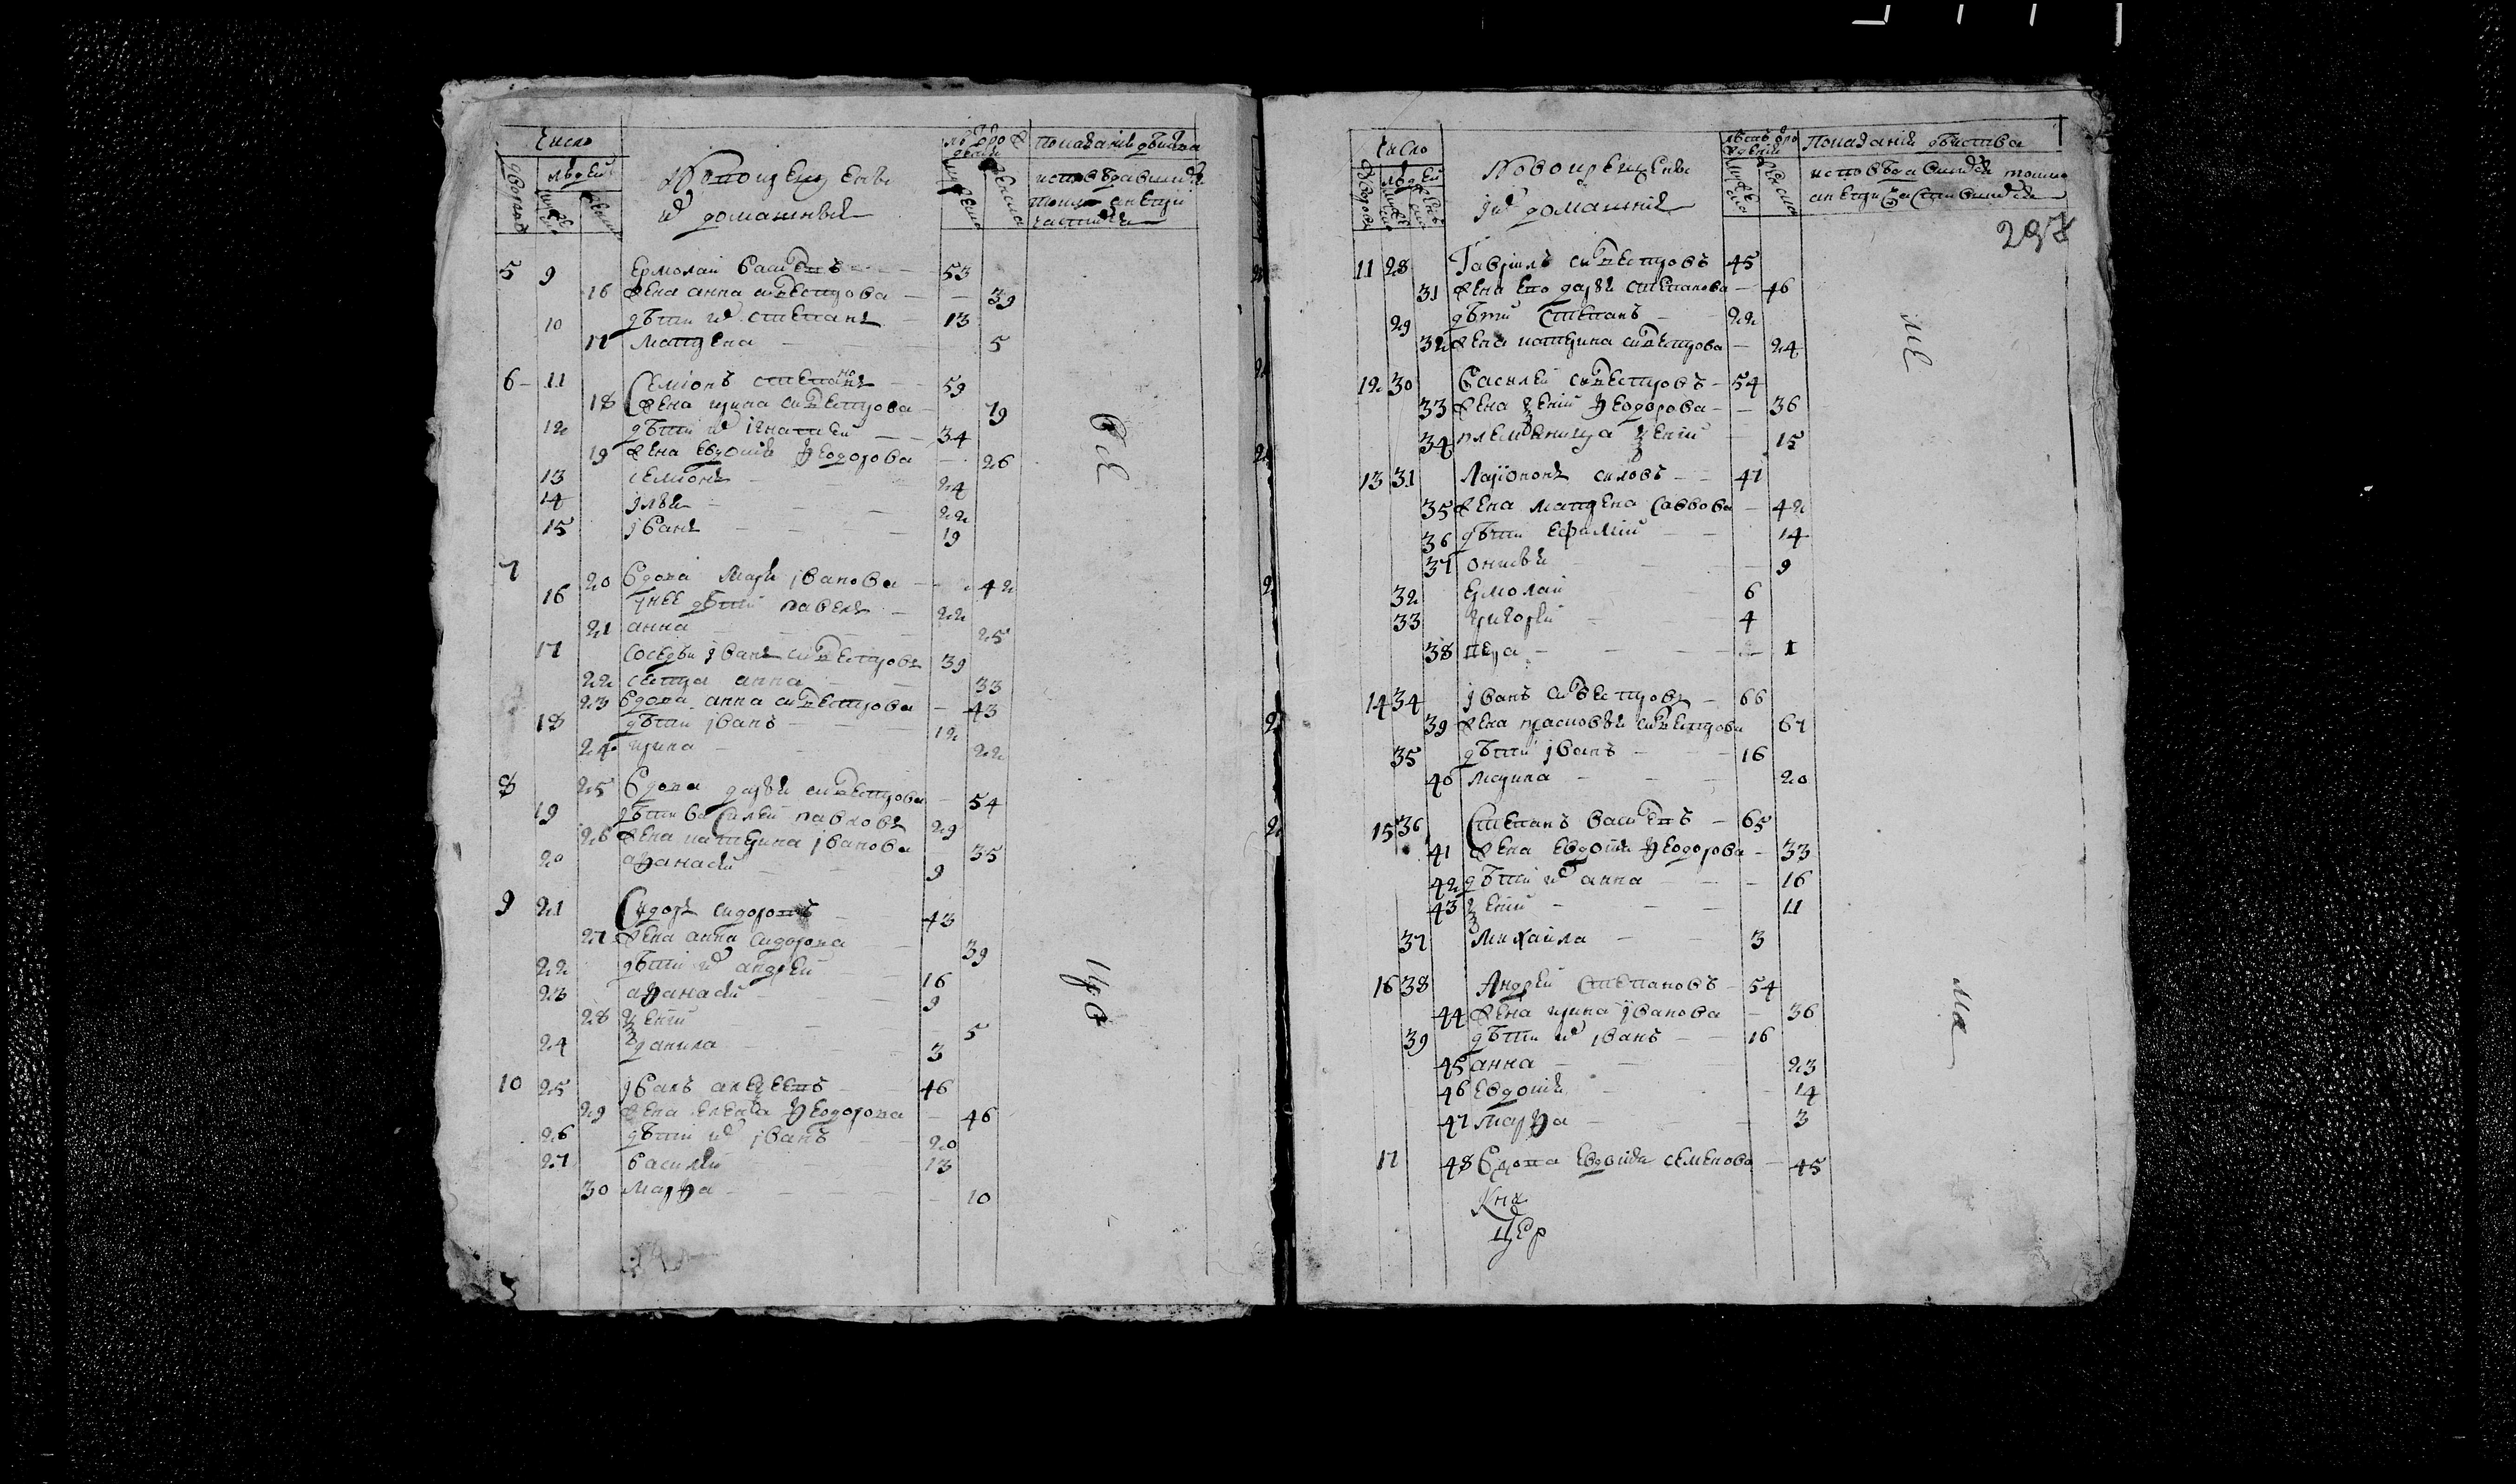 Число
людей
дворовъ
мужеска
женска
Новокрещены
и домашныя
лѣтъ от рождения
мужеска
женска
показанiе дѣйства
исповѣдавшихся
токмо а не при
частихся
5 9 Ермолай Васильевъ 53
16 жена анна силвестрова 39
10 дѣти их степанъ 13
17 матрена 5
6 11 Семионъ степановъ 59
18 жена ирина силвестрова 79
12 дѣти их игнатей 34
19 жена евдотья Ѳеодорова 26
13 семионъ 24
14 илья 22
15 иванъ 19
7 20 вдова марья иванова 42
16 у нее дѣти павелъ 22
21 анна 25
17 соседъ иванъ силвестровъ 39
22 сестра анна 33
23 вдова анна силвестрова 43
18 дѣти иванъ 12
24 ирина 22
8 25 вдова дарья силвестрова 54
19 дѣти василей павловъ 29
26 жена катерина иванова 35
20 аѳанасий 9
9 21 Сидоръ сидоровъ 43
27 жена анна сидорова 39
22 дѣти их андрей 16
23 аѳанасий 9
28 ксения 5
24 данила 3
10 25 иванъ алексеевъ 46
29 жена елена Ѳеодорова 46
26 дѣти их иванъ 20
27 василей 13
30 марѳа 10
Число
людей
дворовъ
мужеска
женска
Новокрещены
и их домашния
лѣтъ от рождения
мужеска
женска
показании дѣиства
исповѣдавшихся токмо
а не причастившихся
297
11 28 Гаврилъ силвестровъ 45
31 жена дарья степанова 46
29 дѣти степанъ 22
32 жена катерина силвестрова 24
12 30 Василей силвестровъ 54
33 жена ксения Ѳеодорова 36
34 племяница ксения 15
13 31 Ларионъ силовъ 47
35 жена матрена саввова 42
36 дѣти ефимия 14
37 9
32 Ермолай 6
33 григорей 4
38 1
14 34 иванъ силвестровъ 66
39 жена прасковья силвестрова 67
35 дѣти иванъ 16
40 марина 20
15 36 Степанъ васильевъ 65
41 жена евдотья Ѳеодорова 33
42 дѣти их анна 16
43 ксения 11
37 михайла 3
16 38 Андрей степановъ 54
44 жена ирина иванова 36
39 дѣти их иванъ 16
45 анна 23
46 евдотья 14
47 марѳа 3
17 48 вдова евдокия семенова 45